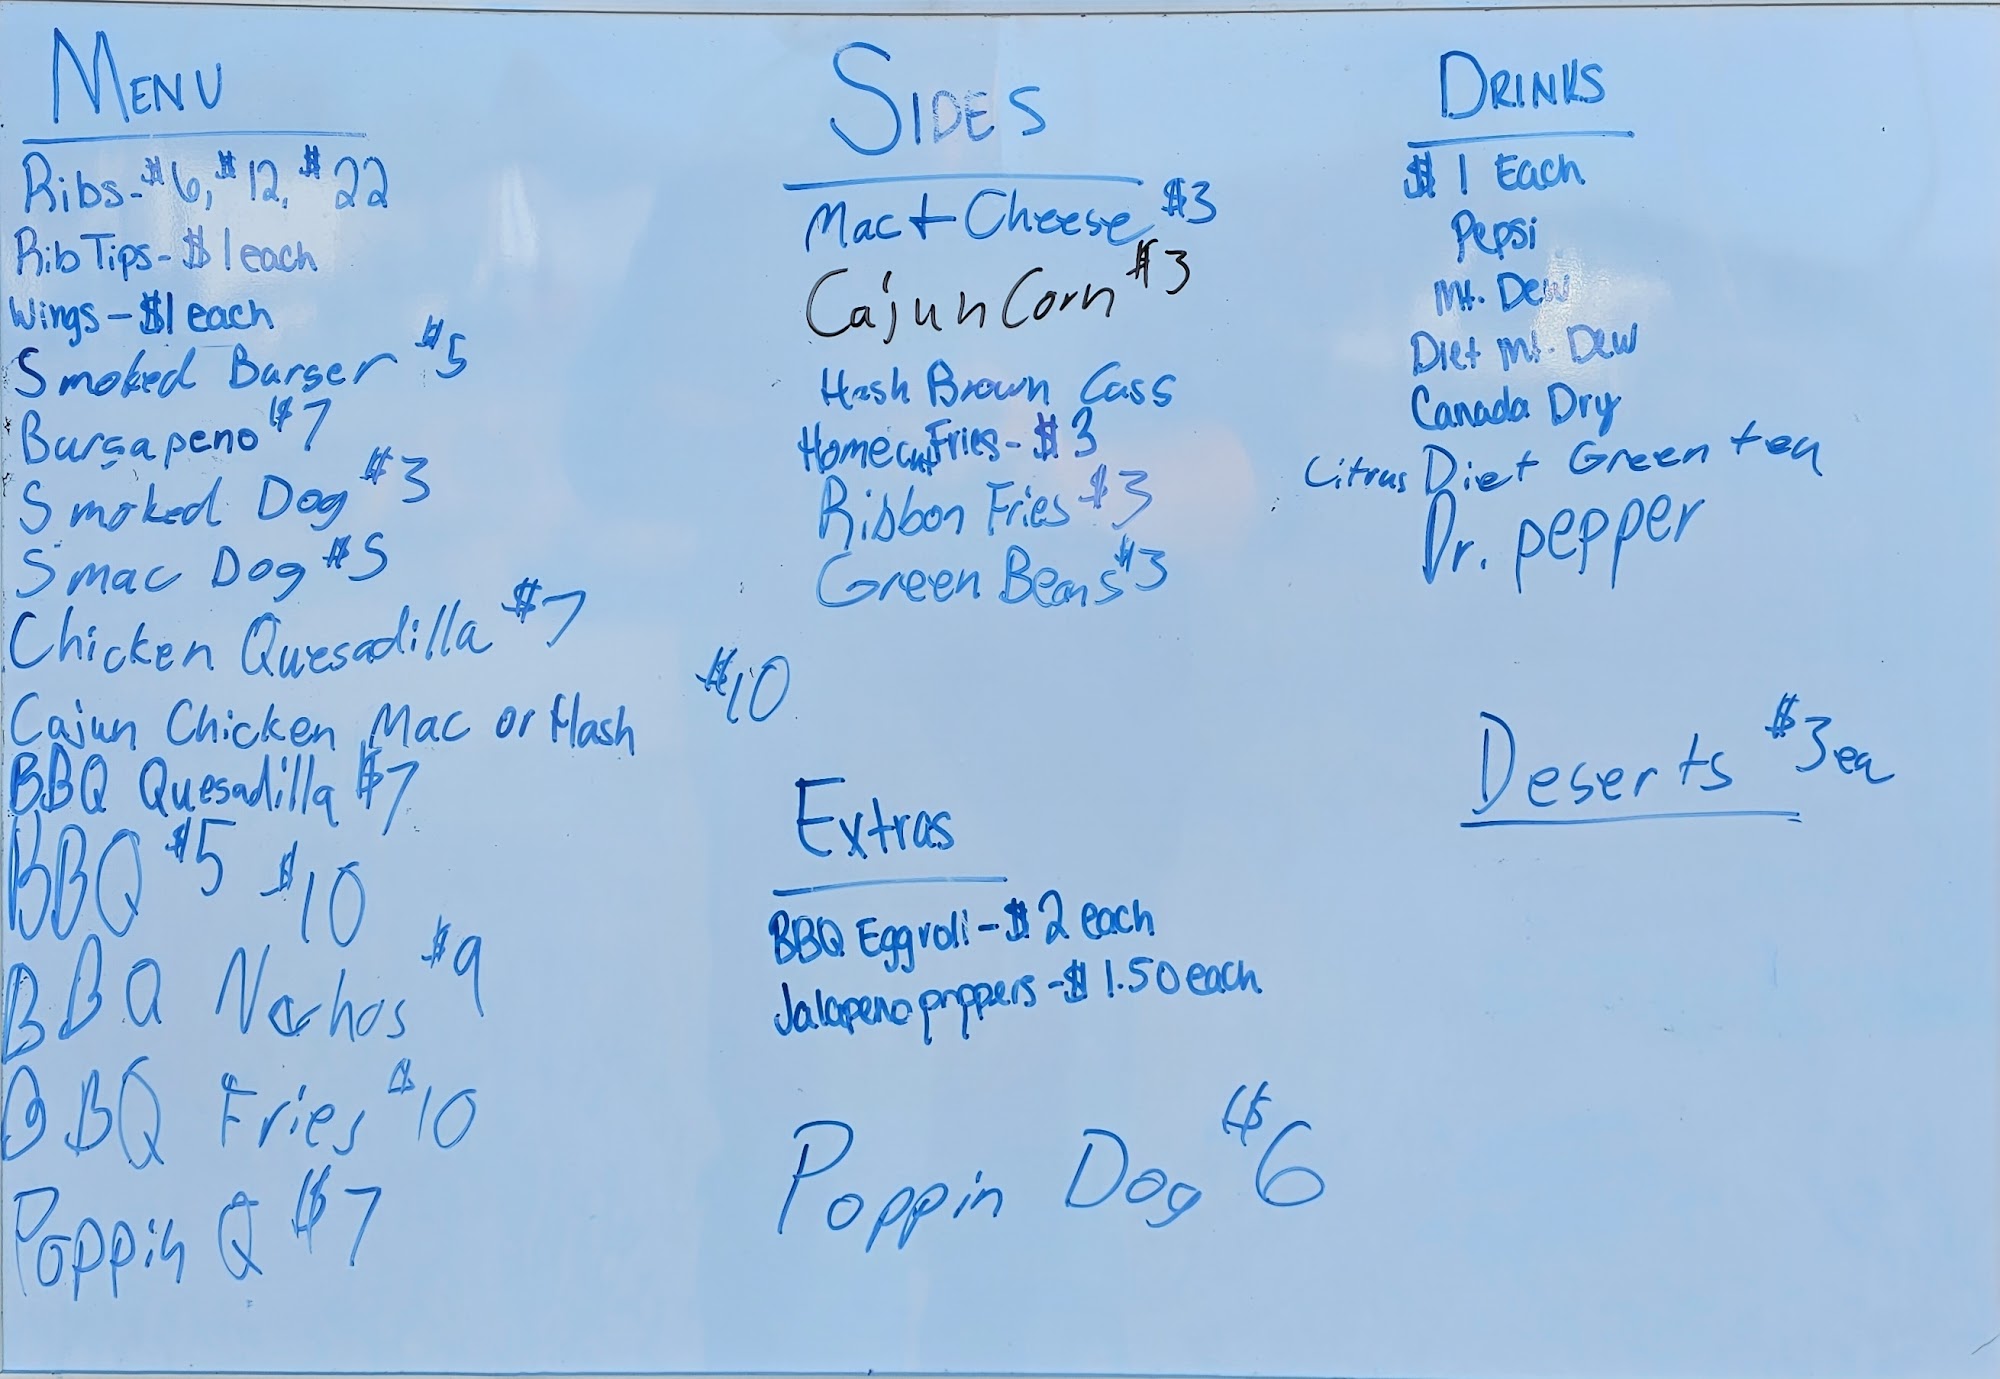 MENU
Ribs - $6, $12, $22
Rib Tips - $1 each
Wings - $1 each
Smoked Burger $5
Burgapeno $7
Smoked Dog $3
Smac Dog $5
Chicken Quesadilla $7
Cajun Chicken Mac or Hash $10
BBQ Quesadilla $7
BBQ $5 $10
BBQ Nachos $9
BBQ Fries $10
Poppin Q $7
SIDES
Mac + Cheese $3
Cajun Corn $3
Hash Brown Cass
Homecut Fries - $3
Ribbon Fries $3
Green Beans $3
Extras
BBQ Eggroll - $2 each
Jalapeno poppers - $1.50 each
Poppin Dog $6
DRINKS
$1 Each
Pepsi
Mt. Dew
Diet Mt. Dew
Canada Dry
Citrus Diet Green tea
Dr. pepper
Deserts $3 ea